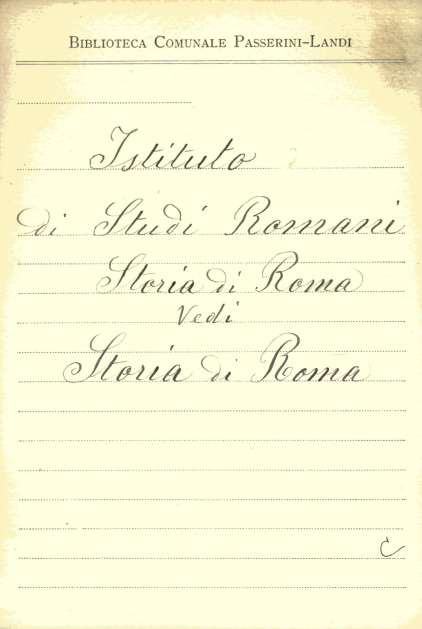 Biblioteca Comunale Passerini-Landi
Istituto
di Studi Romani
Storia di Roma
Vedi
Storia di Roma
C